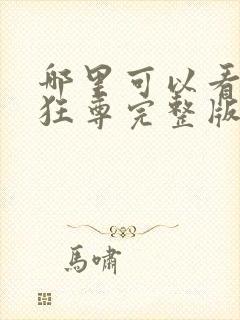 哪里可以看
狂尊完整版
馬嘯